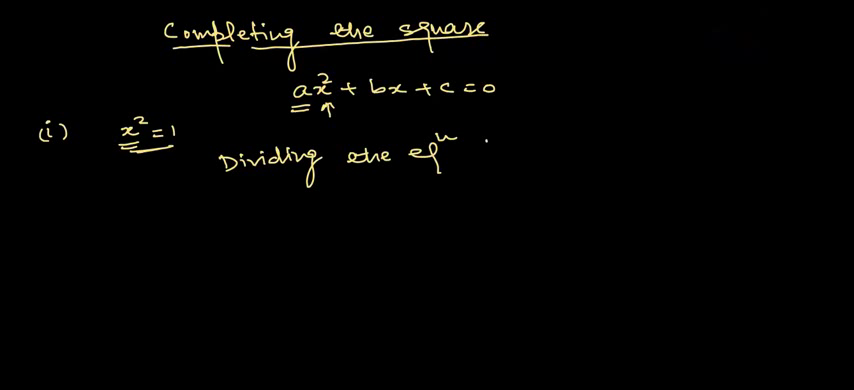 Completing the square
ax² + bx + c = 0
(i) x² = 1
Dividing the eqⁿ